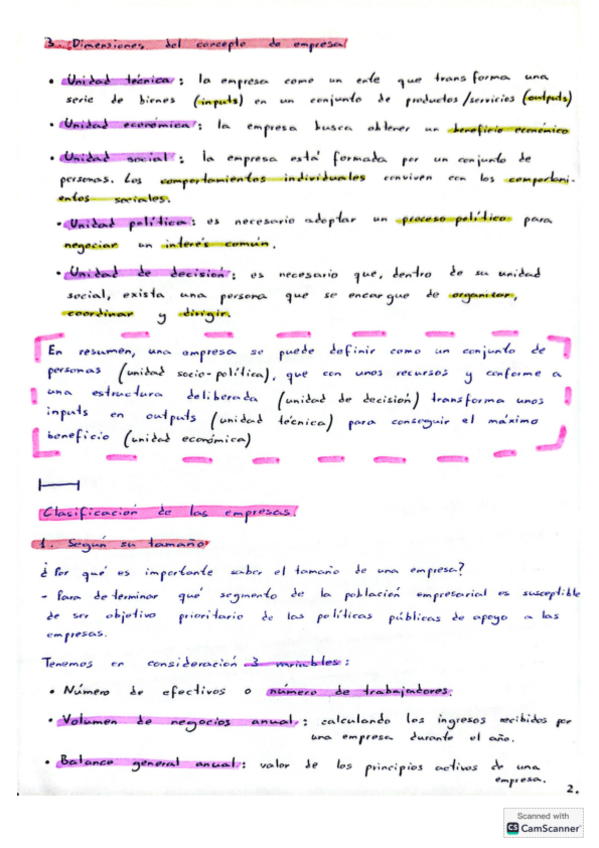 3. Dimensiones del concepto de empresa
• Unidad técnica: la empresa como un ente que transforma una
serie de bienes (inputs) en un conjunto de productos/servicios (outputs)
• Unidad económica: la empresa busca obtener un beneficio económico
• Unidad social: la empresa está formada por un conjunto de
personas. Los comportamientos individuales conviven con los comportami-
entos sociales.
• Unidad política: es necesario adoptar un proceso político para
negociar un interés común.
• Unidad de decisión: es necesario que, dentro de su unidad
social, exista una persona que se encargue de organizar,
coordinar y dirigir.
En resumen, una empresa se puede definir como un conjunto de
personas (unidad socio-política), que con unos recursos y conforme a
una estructura deliberada (unidad de decisión) transforma unos
inputs en outputs (unidad técnica) para conseguir el máximo
beneficio (unidad económica)
Clasificación de las empresas
1. Según su tamaño
¿Por qué es importante saber el tamaño de una empresa?
- Para determinar qué segmento de la población empresarial es susceptible
de ser objetivo prioritario de las políticas públicas de apoyo a las
empresas.
Tenemos en consideración 3 variables:
• Número de efectivos o número de trabajadores.
• Volumen de negocios anual: calculando los ingresos recibidos por
una empresa durante el año.
• Balance general anual: valor de los principios activos de una
empresa.
2.
Scanned with
CS CamScanner